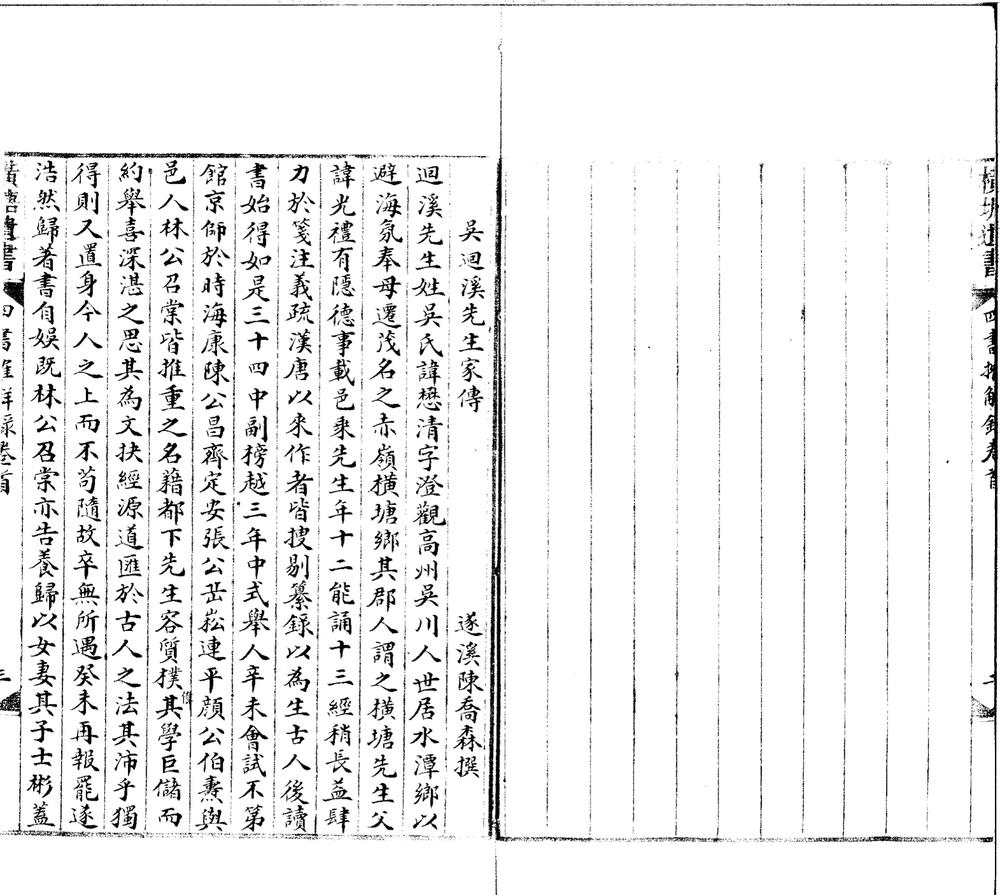 橫塘遺書
四書推解錄卷首
吳迴溪先生家傳
遂溪陳喬森撰
迴溪先生姓吳氏諱懋清字澄觀高州吳川人世居水潭鄉以
避海氛奉母遷茂名之赤嶺橫塘鄉其郡人謂之橫塘先生父
諱光禮有隱德事載邑乘先生年十二能誦十三經稍長益肆
力於箋注義疏漢唐以來作者皆搜剔纂錄以為生古人後讀
書始得如是三十四中副榜越三年中式舉人辛未會試不第
館京師於時海康陳公昌齊定安張公岳崧連平顏公伯燾與
邑人林公召棠皆推重之名藉都下先生容質樸其學巨儲而
約舉喜深湛之思其為文抉經源道匯於古人之法其沛乎獨
得則又置身今人之上而不苟隨故卒無所遇癸未再報罷遂
浩然歸著書自娛既林公召棠亦告養歸以女妻其子士彬蓋
橫塘遺書
四書推解錄卷首